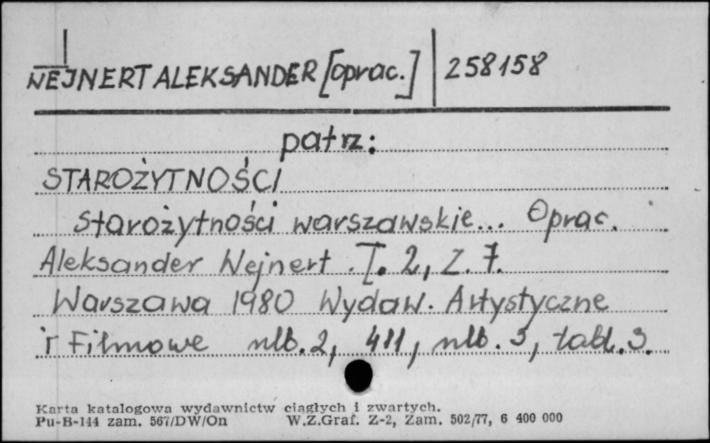 WEJNERT ALEKSANDER [oprac.] 258158
patrz:
STAROŻYTNOŚCI
Starożytności warszawskie... Oprac.
Aleksander Wejnert. T. 2, Z. 7.
Warszawa 1980 Wydaw. Artystyczne
i Filmowe nlb. 2, 411, nlb. 3, tabl. 3.
Karta katalogowa wydawnictw ciągłych i zwartych.
Pu-B-144 zam. 567/DW/On W.Z.Graf. Z-2, Zam. 502/77, 6 400 000